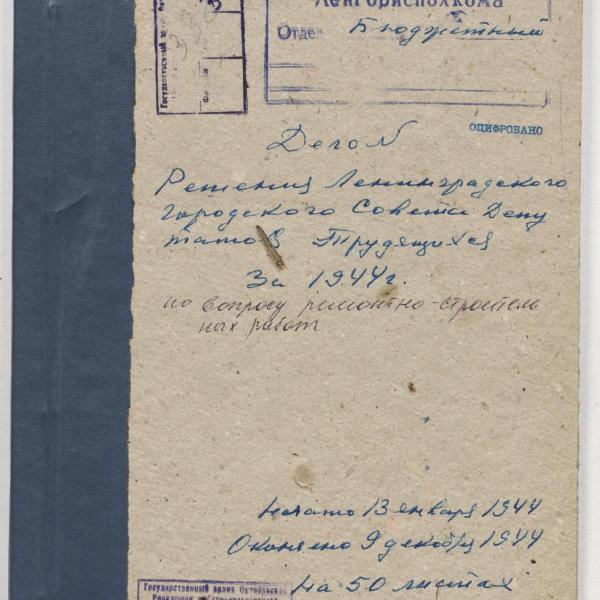 Ленгорисполкома
Отдел Бюджетный
ОЦИФРОВАНО
Дело №
Решения Ленинградского
городского Совета Депу
татов Трудящихся
За 1944 г.
по вопросу ремонтно-строитель
ных работ
Начато 13 января 1944
Окончено 9 декабря 1944
На 50 листах
Государственный архив Октябрьской